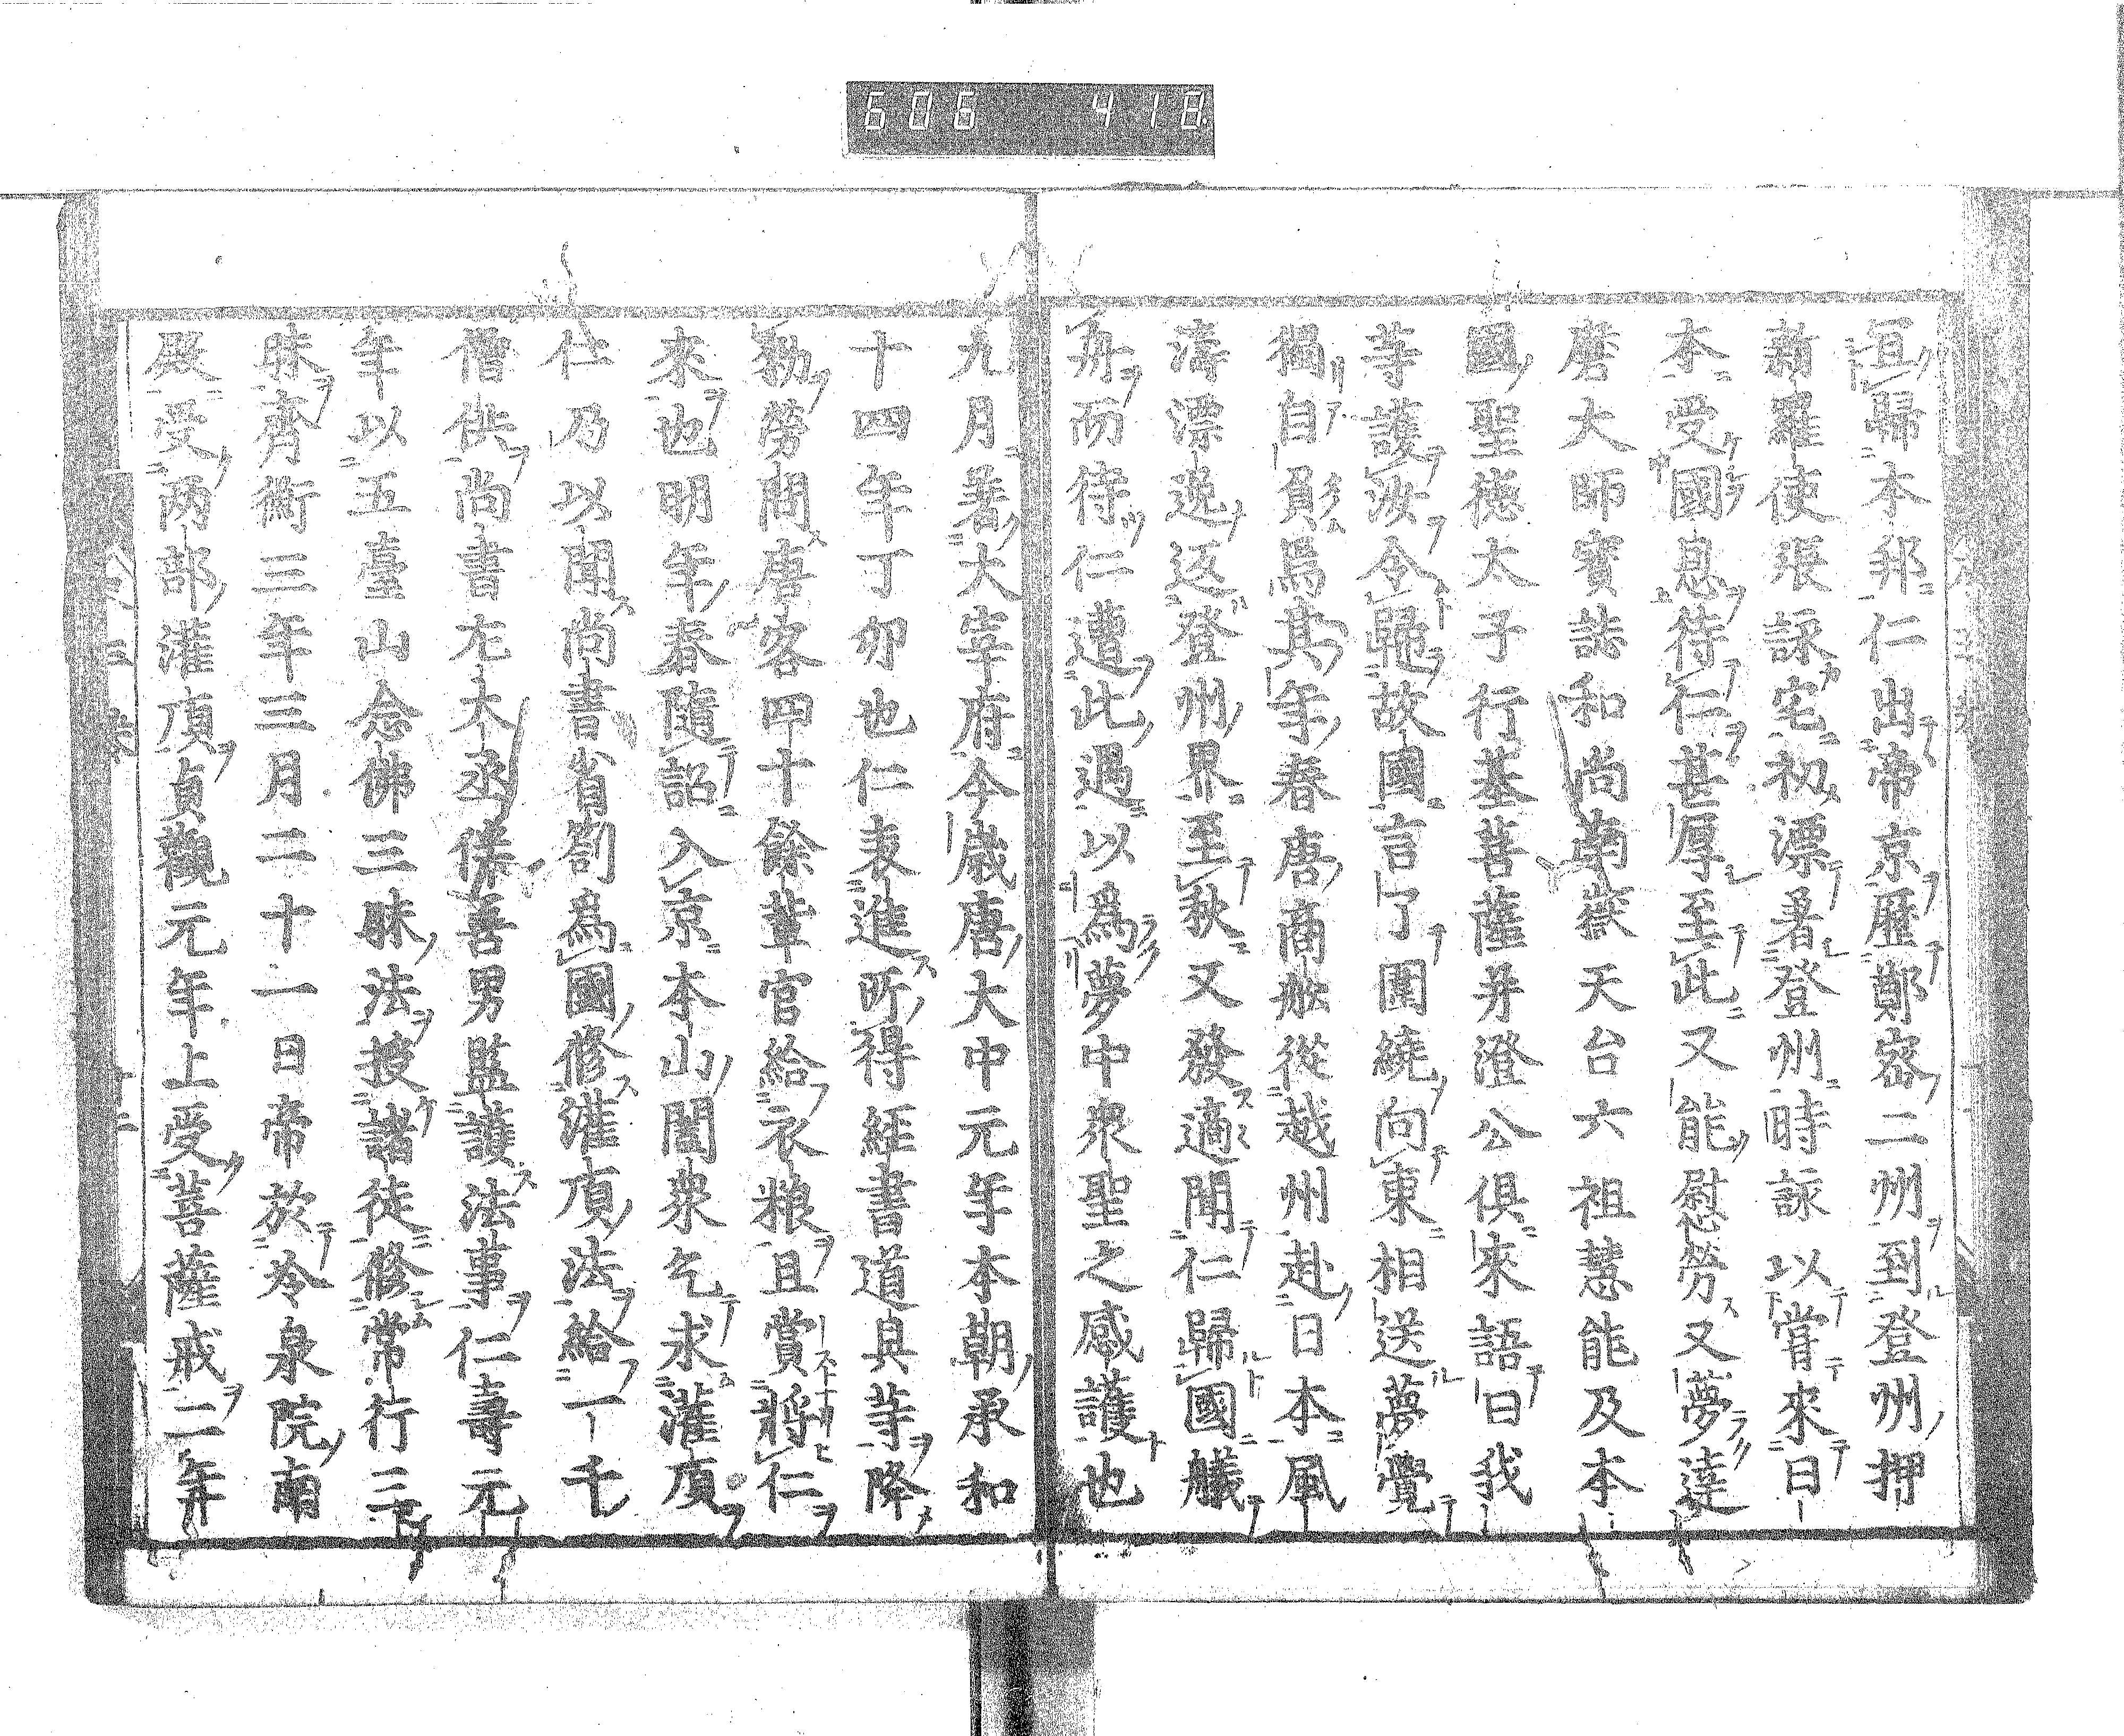 606 418
宜歸本邦仁出帝京歷鄭密二州到登州押
新羅使張詠宅初漂著登州時詠以嘗來日
本受國恩待仁甚厚至此又能慰勞又夢達
磨大師寶誌和尚南嶽天台六祖慧能及本
國聖德太子行基菩薩并澄公俱來語曰我
等護汝令歸故國言了圍繞向東相送夢覺
獨自負焉其年春唐商船從越州赴日本風
濤漂逸返登州界至秋又發適聞仁歸國艤
舟而待仁遭此遇以爲夢中衆聖之感護也
九月著大宰府今歲唐大中元年本朝承和
十四年丁卯也仁表進所得經書道具等降
勅勞問唐客四十餘輩官給衣粮且賞將仁
來也明年春隨詔入京本山闔衆乞求灌頂
仁乃以聞尚書省劄爲國修灌頂法給一千
僧供尚書左大丞伴善男監護法事仁壽元
年以五臺山念佛三昧法授諸徒修常行三
昧齊衡三年三月二十一日帝於冷泉院南
殿受两部灌頂貞觀元年上受菩薩戒二年